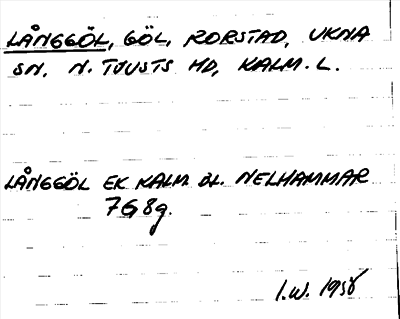 LÅNGGÖL, GÖL, RORSTAD, UKNA
SN, N. TJUSTS HD, KALM. L.
LÅNGGÖL EK KALM BL. NELHAMMAR
7G8g.
I.W. 1958